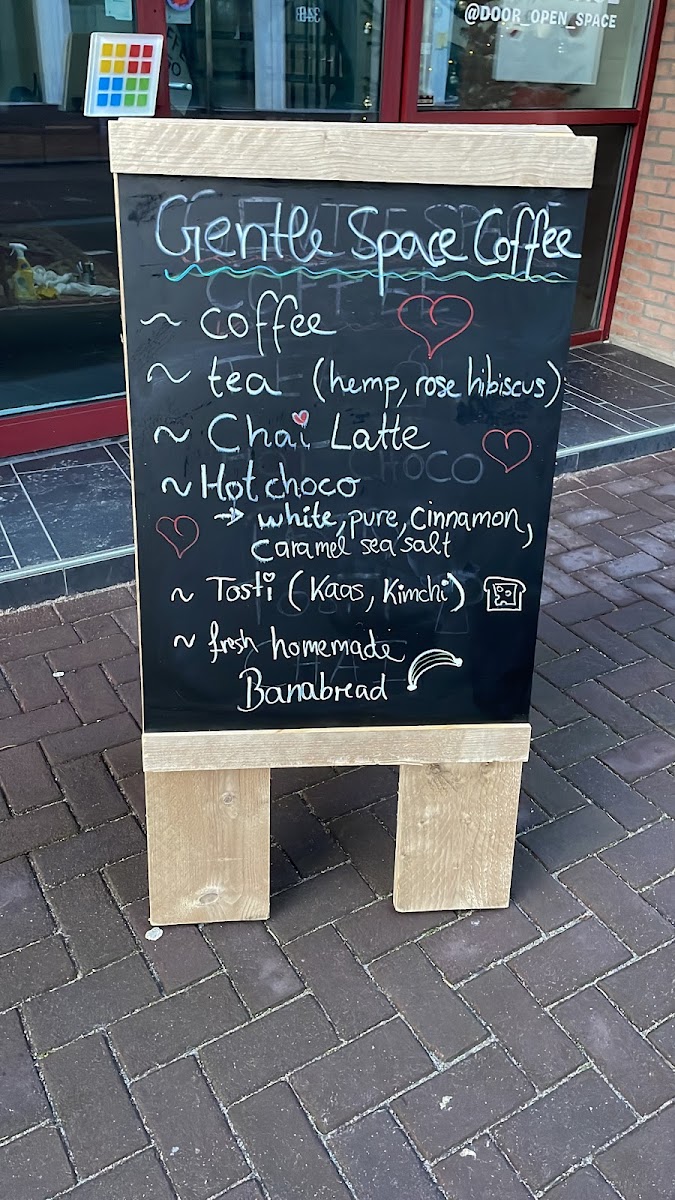 @DOOR_OPEN_SPACE
34B
Gentle Space Coffee
~ coffee
~ tea (hemp, rose hibiscus)
~ Chai Latte
~ Hot choco
→ white, pure, cinnamon,
caramel sea salt
~ Tosti (Kaas, Kimchi)
~ fresh homemade
Banabread